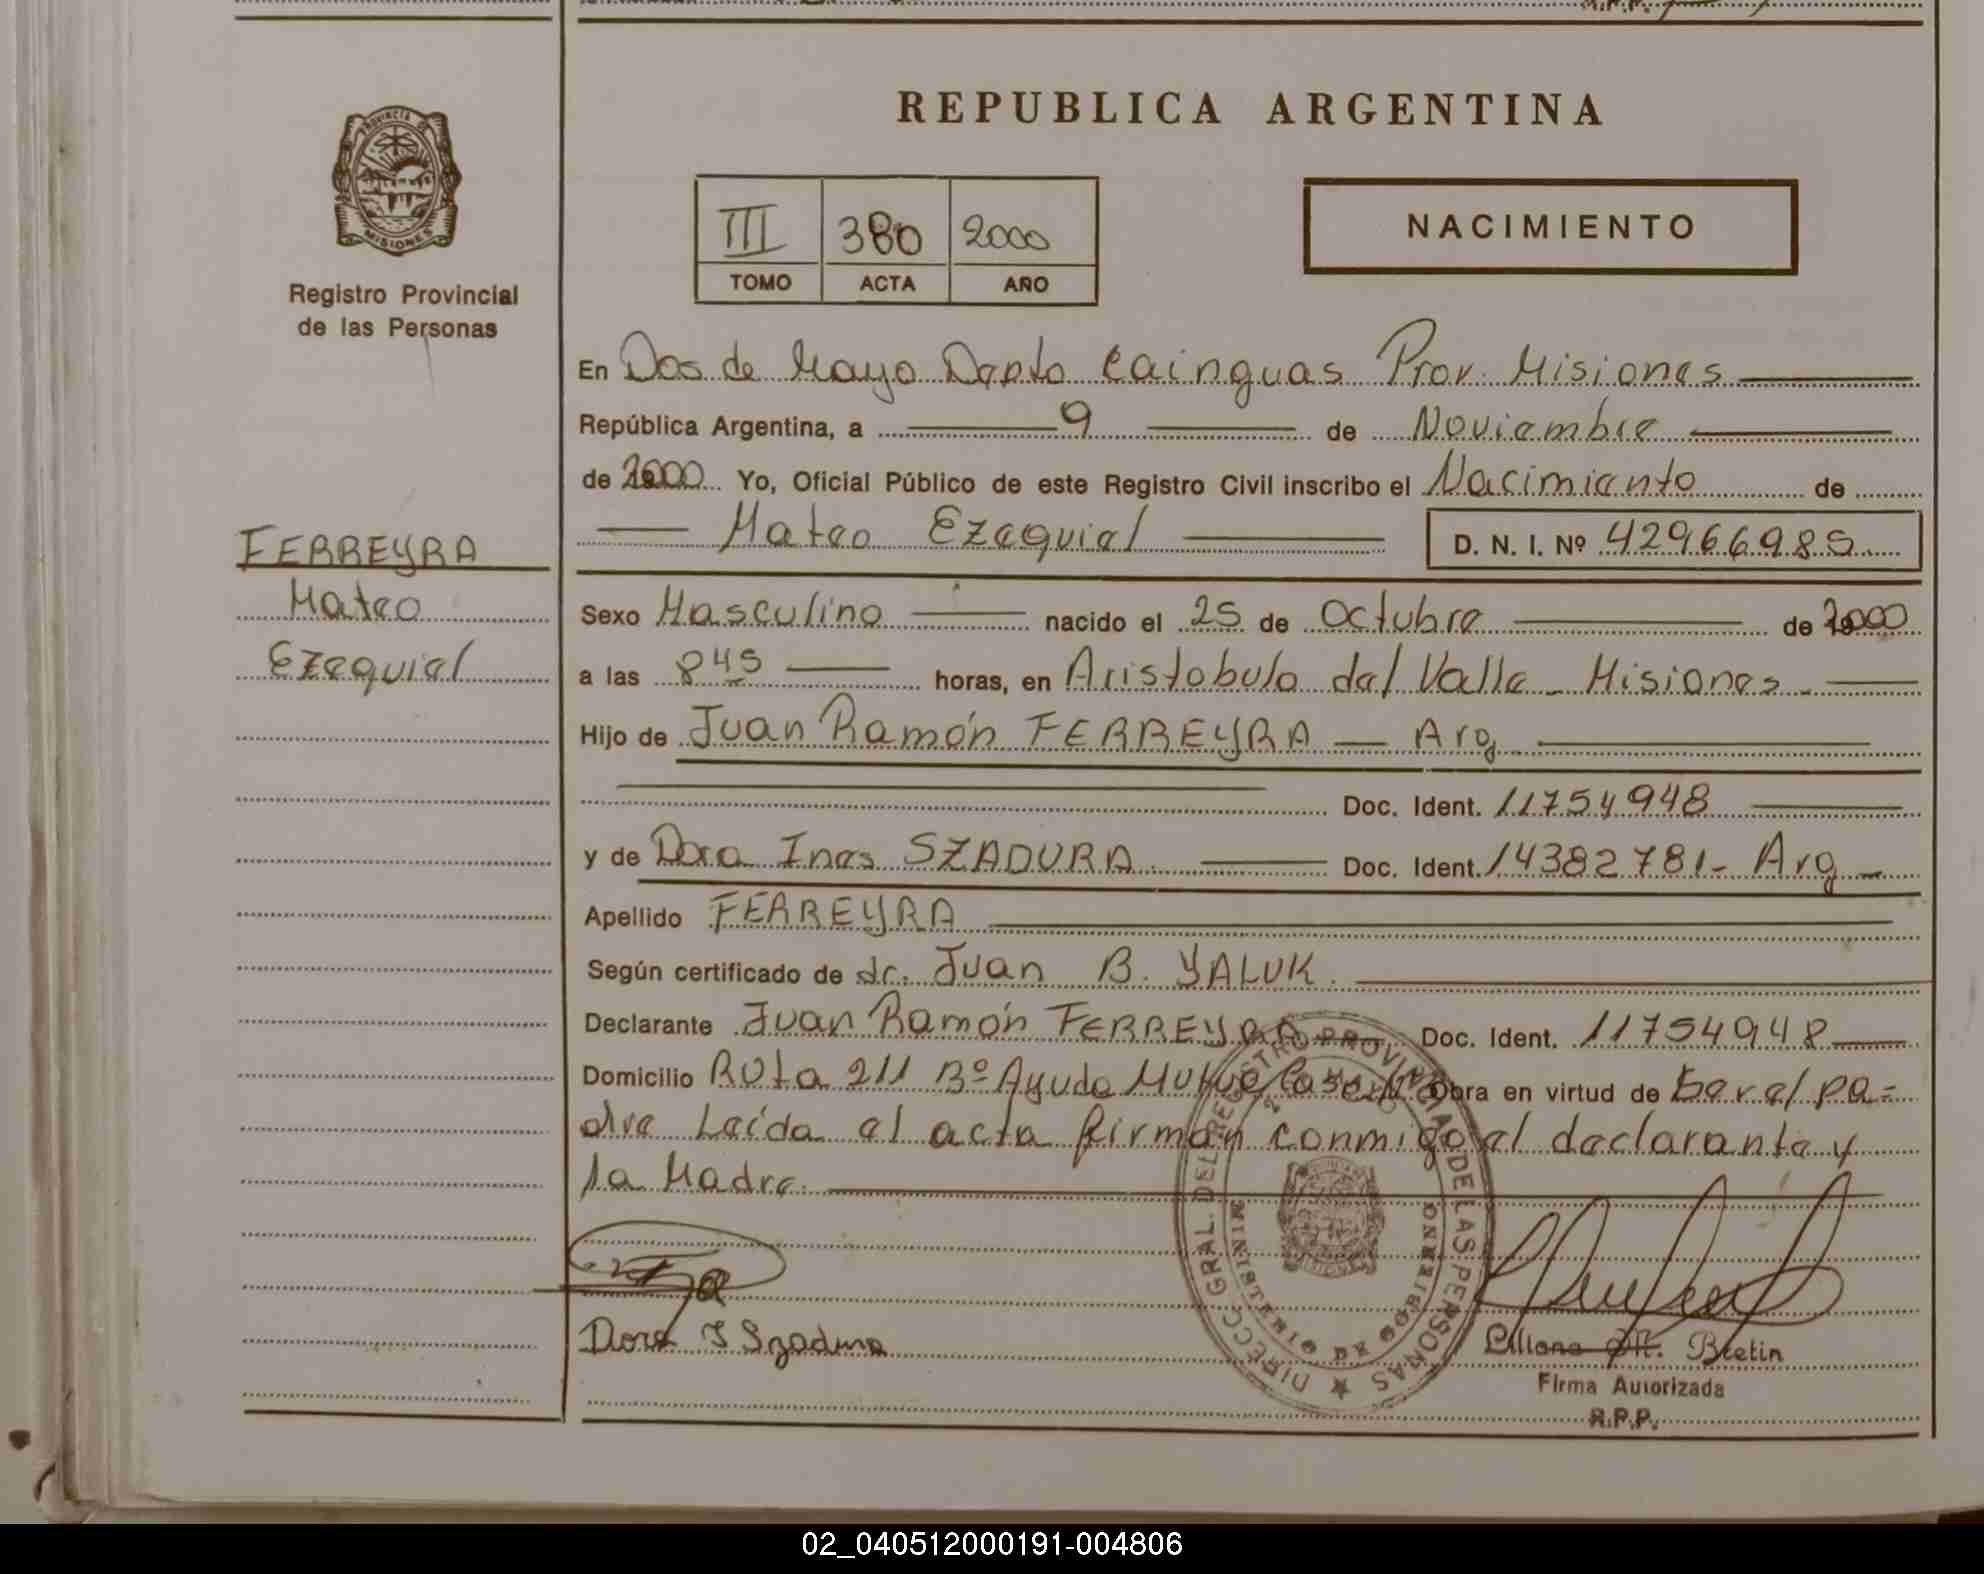 REPUBLICA ARGENTINA
PROVINCIA DE
MISIONES
Registro Provincial
de las Personas
III 380 2000
TOMO ACTA AÑO
NACIMIENTO
En Dos de Mayo Depto Cainguas Prov. Misiones
República Argentina, a 9 de Noviembre
de 2000 Yo, Oficial Público de este Registro Civil inscribo el Nacimiento de
Mateo Ezequiel D. N. I. Nº 42966985
FERREYRA
Mateo
Ezequiel
Sexo Masculino nacido el 25 de Octubre de 2000
a las 8 45 horas, en Aristobulo del Valle - Misiones -
Hijo de Juan Ramón FERREYRA — Arg
Doc. Ident. 11754948
y de Dora Ines SZADURA Doc. Ident. 14382781- Arg
Apellido FERREYRA
Según certificado de dr. Juan B. YALUK.
Declarante Juan Ramón FERREYRA Doc. Ident. 11754948
Domicilio Ruta 211 Bº Ayuda Mutua Obra en virtud de Ser el pa=
dre Leída el acta firman conmigo el declarante y
la Madre.
DIRECC. GRAL. DEL REGISTRO PROVINCIAL DE LAS PERSONAS
MINISTERIO DE GOBIERNO
Dora I Szadura
Liliana M. Bretin
Firma Autorizada
R.P.P.
02_040512000191-004806